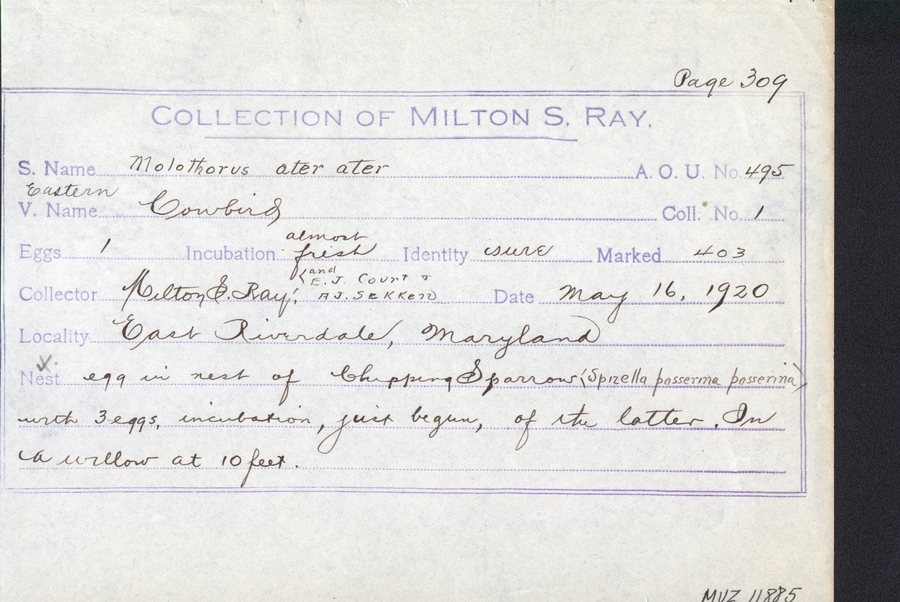 Page 309
COLLECTION OF MILTON S. RAY.
S. Name Molothorus ater ater A. O. U. No. 495
Eastern
V. Name Cowbird Coll. No. 1
almost
Eggs 1 Incubation fresh Identity sure Marked 403
(and E. J. Court &
Collector Milton S. Ray; A. J. Date May 16, 1920
Locality East Riverdale, Maryland
Nest egg in nest of Chipping Sparrow (Spizella passerina passerina)
with 3 eggs, incubation, just begun, of the latter. In
a willow at 10 feet.
MVZ 11885